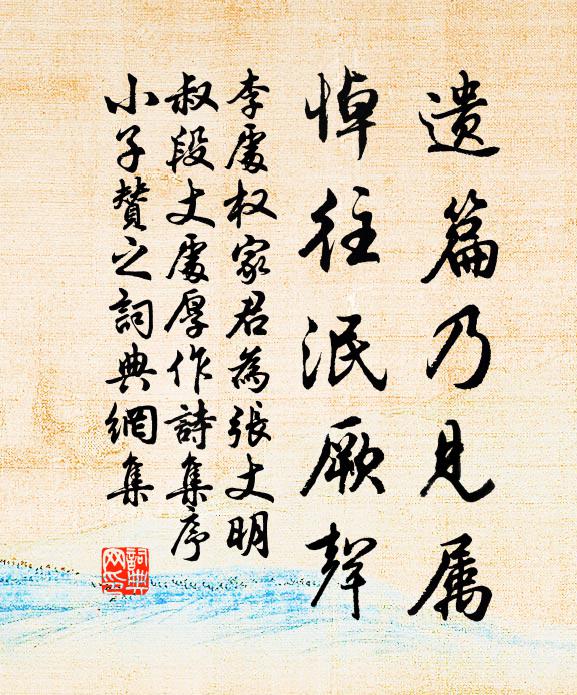 遗篇乃见属
悼往泯厥聲
李處权家君為張丈明
叔段丈處厚作詩集序
小子賛之詞典網集
詞典网印